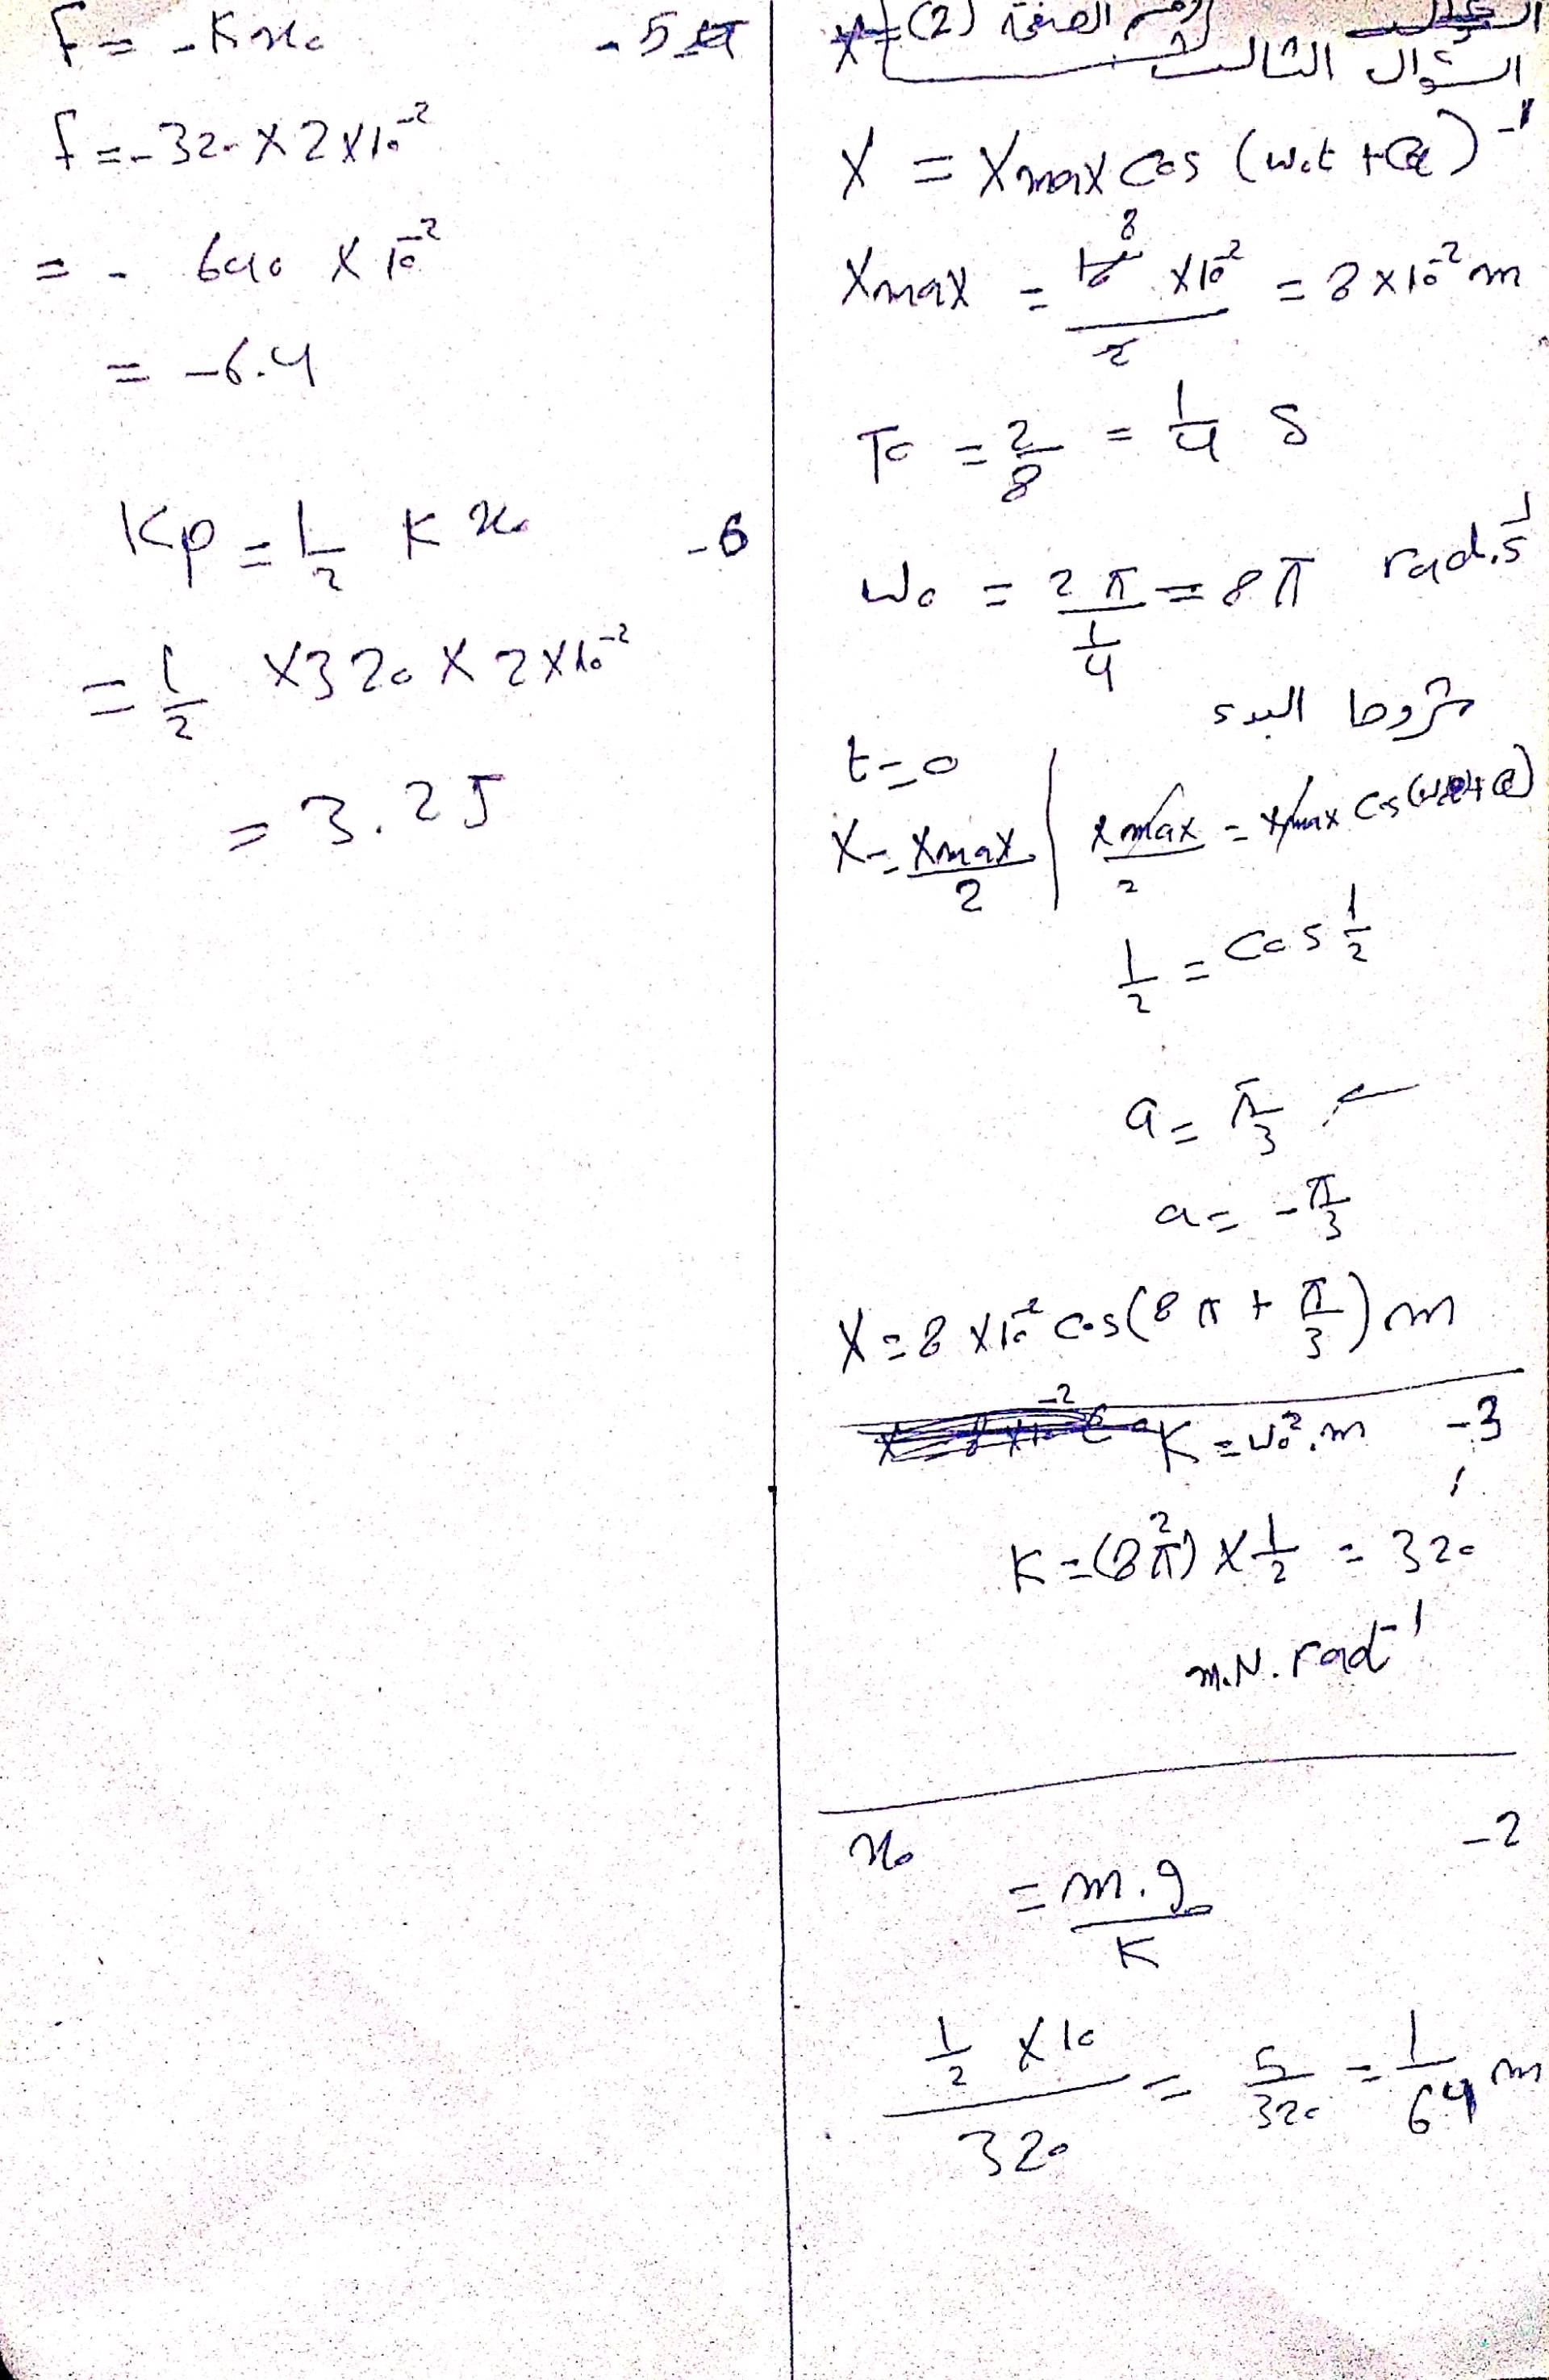 رقم الصفحة (2)
السؤال الثالث
X = Xmax cos (W₀t + φ) -1
Xmax = 16 8 × 10⁻² / 2 = 8 × 10⁻² m
T₀ = 2/8 = 1/4 s
W₀ = 2π / (1/4) = 8π rad.s⁻¹
شروط البدء
t = 0
X = Xmax/2 | Xmax/2 = Xmax cos
1/2 = cos 1/2
φ = π/3
φ = -π/3
X = 8 × 10⁻² cos(8π + π/3) m
K = W₀².m -3
K = (8π)² × 1/2 = 320
m.N.rad⁻¹
x₀ = m.g / K -2
1/2 × 10 / 320 = 5/320 = 1/64 m
F = -K x₀ -5
F = -320 × 2 × 10⁻²
= - 640 × 10⁻²
= -6.4
Kp = 1/2 K x₀ -6
= 1/2 × 320 × 2 × 10⁻²
= 3.2 J